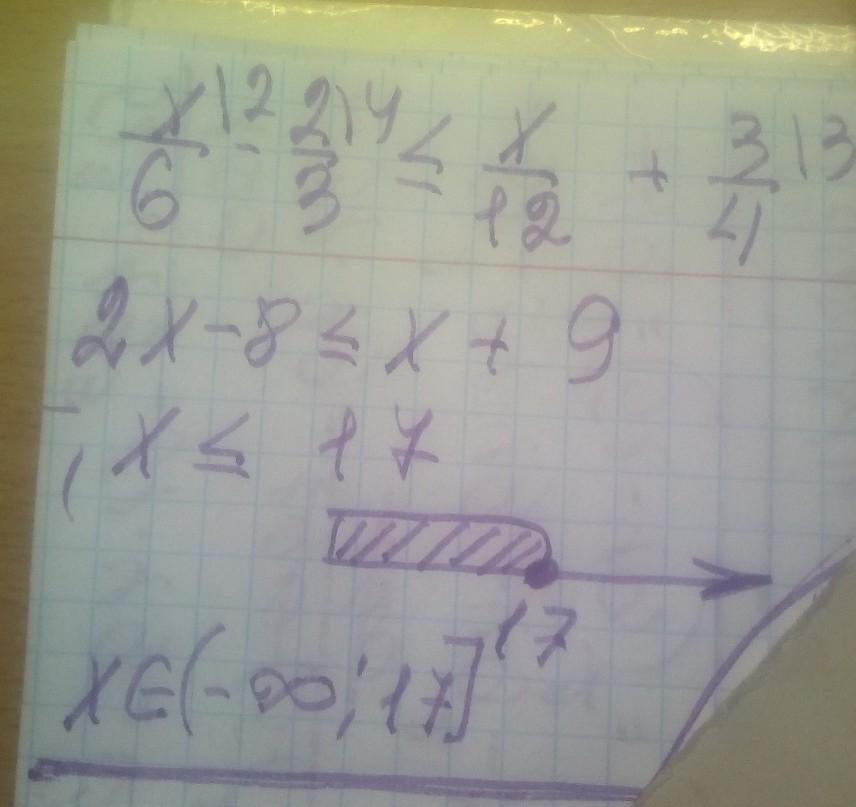 x/6 \2 - 2/3 \4 ≤ x/12 + 3/4 \3
2x - 8 ≤ x + 9
x ≤ 17
17
x ∈ (-∞; 17]